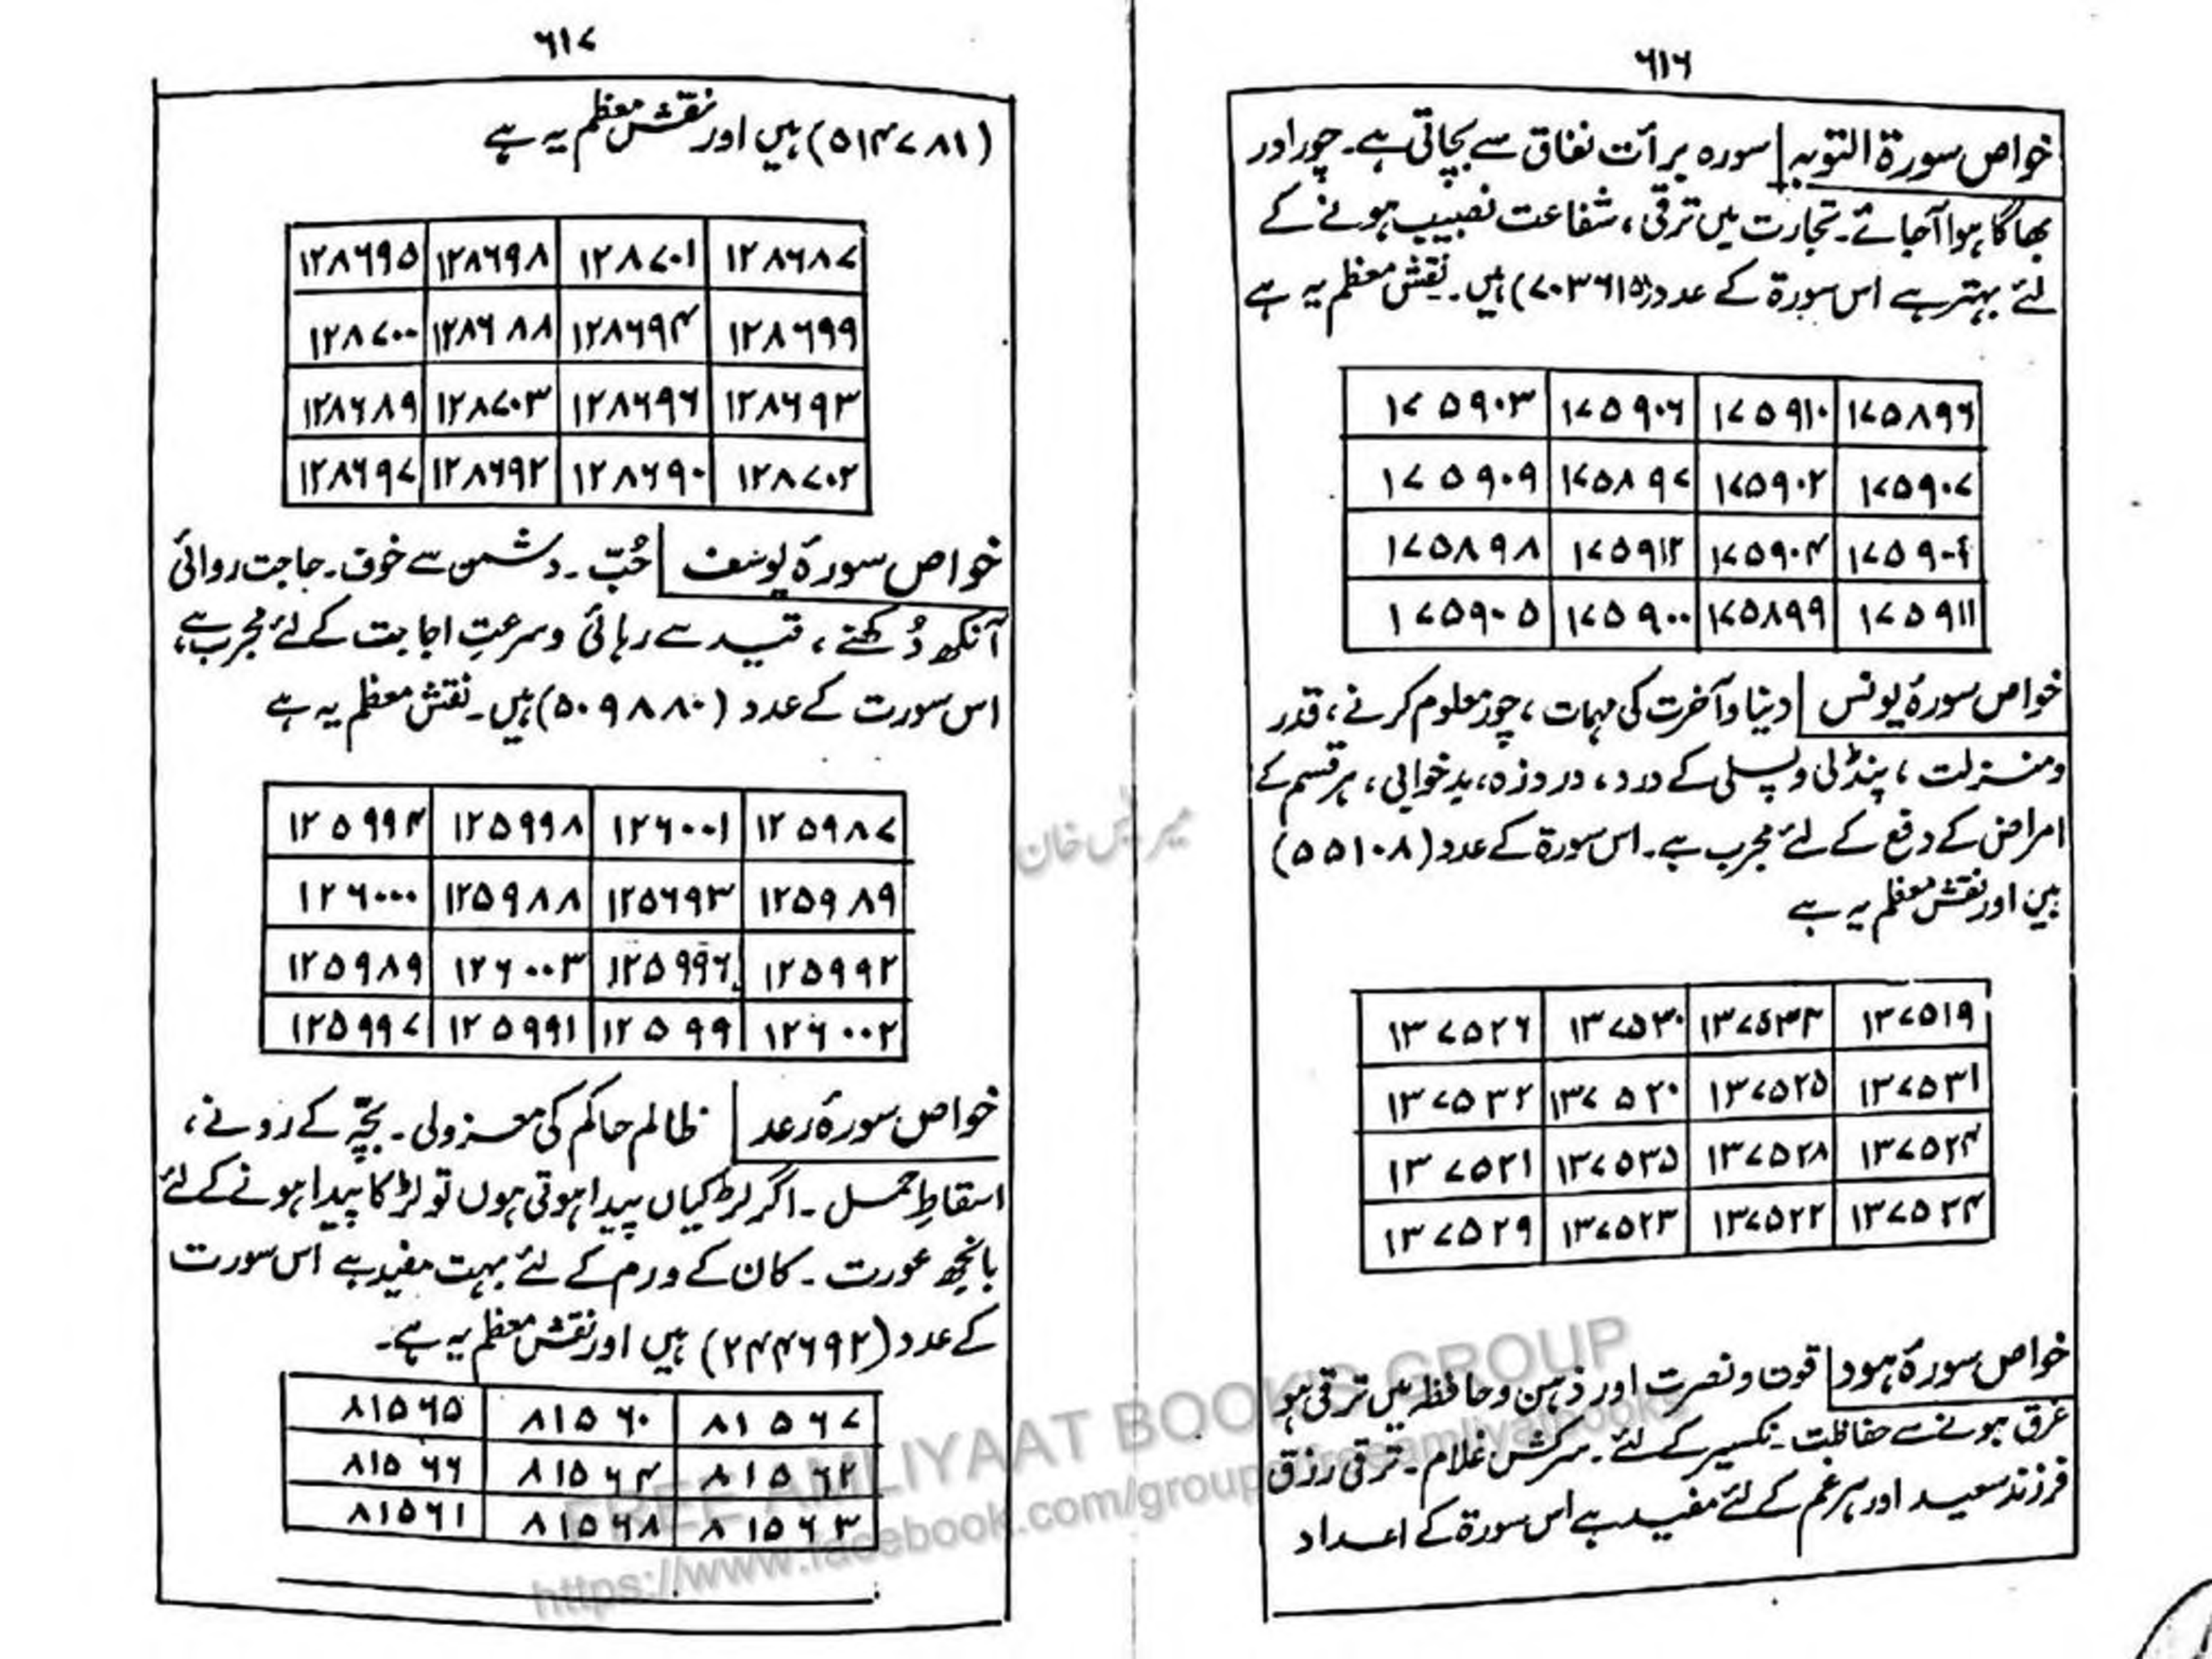 ۶۱۶
خواص سورۃ التوبہ سورہ برأت نفاق سے بچاتی ہے۔ چور اور
بھاگا ہوا آجائے۔ تجارت میں ترقی، شفاعت نصیب ہونے کے
لئے بہتر ہے اس سورۃ کے عدد (۷۰۳۶۱۵) ہیں۔ نقش معظم یہ ہے
۱۷۵۸۹۶ ۱۷۵۹۱۰ ۱۷۵۹۰۶ ۱۷۵۹۰۳
۱۷۵۹۰۷ ۱۷۵۹۰۲ ۱۷۵۸۹۷ ۱۷۵۹۰۹
۱۷۵۹۰۴ ۱۷۵۹۱۲ ۱۷۵۸۹۸
۱۷۵۹۱۱ ۱۷۵۸۹۹ ۱۷۵۹۰۰ ۱۷۵۹۰۵
خواص سورۂ یونس دینا و آخرت کی مہمات، چور معلوم کرنے، قدر
و منزلت، پنڈلی و پسلی کے درد، درد زہ، بدخوابی، ہر قسم کے
امراض کے دفع کے لئے مجرب ہے۔ اس سورۃ کے عدد (۵۵۱۰۸)
ہیں اور نقش معظم یہ ہے
۱۳۷۵۱۹ ۱۳۷۵۳۳ ۱۳۷۵۳۰ ۱۳۷۵۲۶
۱۳۷۵۳۱ ۱۳۷۵۲۵ ۱۳۷۵۲۰ ۱۳۷۵۳۲
۱۳۷۵۲۴ ۱۳۷۵۲۸ ۱۳۷۵۳۵ ۱۳۷۵۲۱
۱۳۷۵۲۲ ۱۳۷۵۲۳ ۱۳۷۵۲۹
خواص سورۂ ہود قوت و نصرت اور ذہن و حافظہ میں ترقی ہو
غرق ہونے سے حفاظت۔ نکسیر کے لئے۔ سرکش غلام۔ ترقی رزق
فرزند سعید اور ہر غم کے لئے مفید ہے اس سورۃ کے اعداد
۶۱۷
(۵۱۴۷۸۱) ہیں اور نقش معظم یہ ہے
۱۲۸۶۸۷ ۱۲۸۷۰۱ ۱۲۸۶۹۸ ۱۲۸۶۹۵
۱۲۸۶۹۹ ۱۲۸۶۹۴ ۱۲۸۶۸۸ ۱۲۸۷۰۰
۱۲۸۶۹۳ ۱۲۸۶۹۶ ۱۲۸۷۰۳ ۱۲۸۶۸۹
۱۲۸۷۰۲ ۱۲۸۶۹۰ ۱۲۸۶۹۲ ۱۲۸۶۹۷
خواص سورۂ یوسف حُبّ۔ دشمن سے خوف۔ حاجت روائی
آنکھ دُکھنے، قید سے رہائی و سرعتِ اجابت کے لئے مجرب ہے،
اس سورت کے عدد (۵۰۹۸۸۰) ہیں۔ نقش معظم یہ ہے
۱۲۵۹۸۷ ۱۲۶۰۰۱ ۱۲۵۹۹۸ ۱۲۵۹۹۴
۱۲۵۹۸۹ ۱۲۵۶۹۳ ۱۲۵۹۸۸ ۱۲۶۰۰۰
۱۲۵۹۹۲ ۱۲۵۹۹۶ ۱۲۶۰۰۳ ۱۲۵۹۸۹
۱۲۶۰۰۲ ۱۲۵۹۹ ۱۲۵۹۹۱ ۱۲۵۹۹۷
خواص سورۂ رعد ظالم حاکم کی معزولی۔ بچّہ کے رونے،
اسقاطِ حمل۔ اگر لڑکیاں پیدا ہوتی ہوں تو لڑکا پیدا ہونے کے لئے
بانجھ عورت۔ کان کے ورم کے لئے بہت مفید ہے اس سورت
کے عدد (۲۴۴۶۹۲) ہیں اور نقش معظم یہ ہے۔
۸۱۵۶۷ ۸۱۵۶۰ ۸۱۵۶۵
۸۱۵۶۲ ۸۱۵۶۴ ۸۱۵۶۶
۸۱۵۶۳ ۸۱۵۶۸ ۸۱۵۶۱
FREE AMLIYAAT BOOK'S GROUP
https://www.facebook.com/groups/freeamliyatbooks